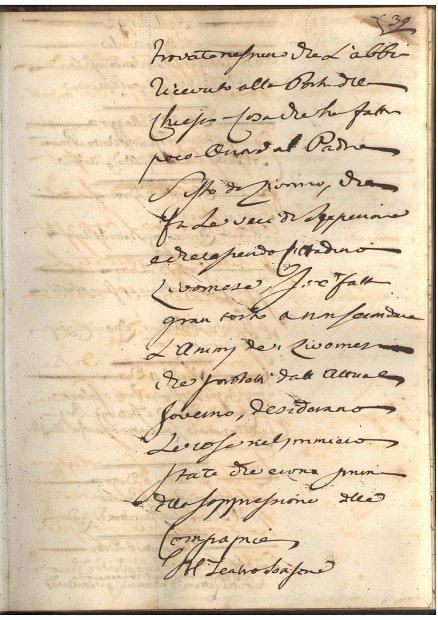 39
trovato nessuno che l'abbia
ricevuto alla Porta della
Chiesa. Cosa che ha fatto
poco onore al Padre
Sisto da Livorno, che
fa le veci di Superiore
e che essendo Cittadino
Livornese, ha fatto
gran torto a non secondare
L'Animo de Livornesi
che portati dall'Attuale
Governo, desiderano
Le cose nel primiero
stato che erono prima
della soppressione delle
Compagnie